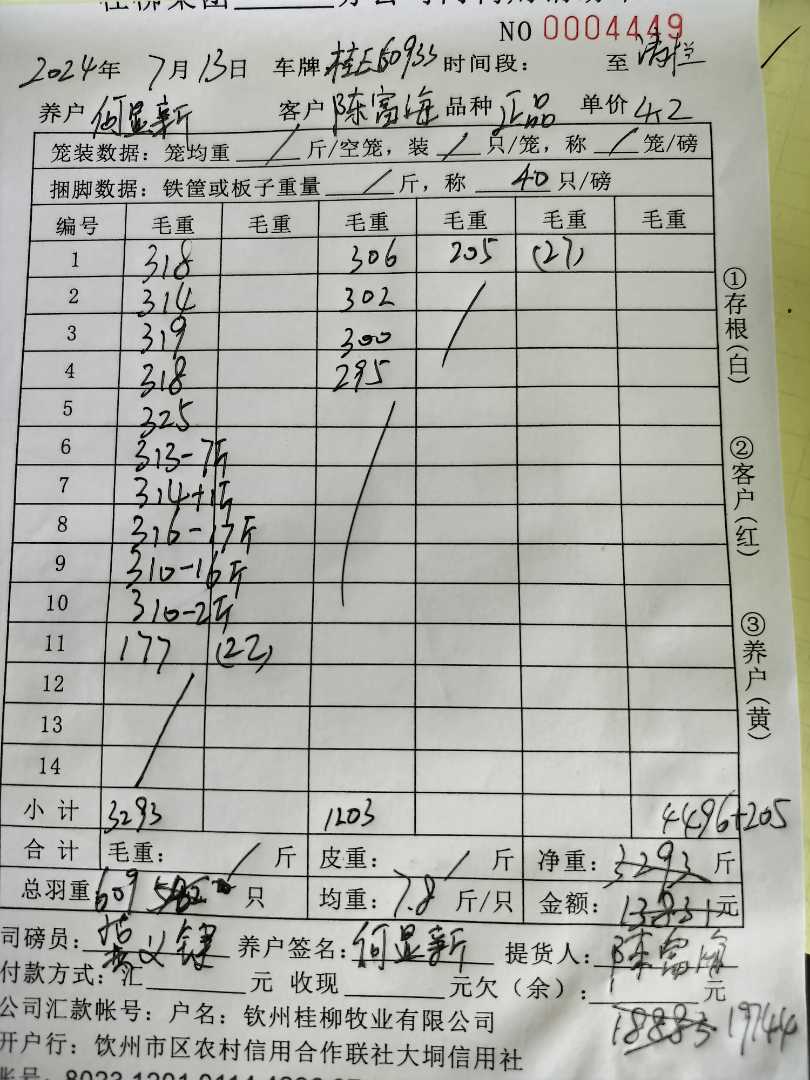 NO 0004449
2024年 7月13日 车牌桂E60933 时间段: 至 清栏
养户 何显新 客户 陈富海 品种 正品 单价 4.2
笼装数据:笼均重 / 斤/空笼,装 / 只/笼,称 / 笼/磅
捆脚数据:铁筐或板子重量 / 斤,称 40 只/磅
编号 毛重 毛重 毛重 毛重 毛重 毛重
1 318 306 205 (27)
2 314 302
3 319 300
4 318 295
5 325
6 313-7斤
7 314+1斤
8 316-17斤
9 310-16斤
10 310-2斤
11 177 (22)
12
13
14
小计 3293 1203 4496+205
合计 毛重: / 斤 皮重: / 斤 净重: 3293 斤
总羽重 609 只 均重: 7.8 斤/只 金额: 13831 元
司磅员: 养户签名: 何显新 提货人: 陈富海
付款方式:汇 元 收现 元欠(余): 元
公司汇款帐号:户名:钦州桂柳牧业有限公司
18883 19744
开户行:钦州市区农村信用合作联社大垌信用社
①存根(白)
②客户(红)
③养户(黄)